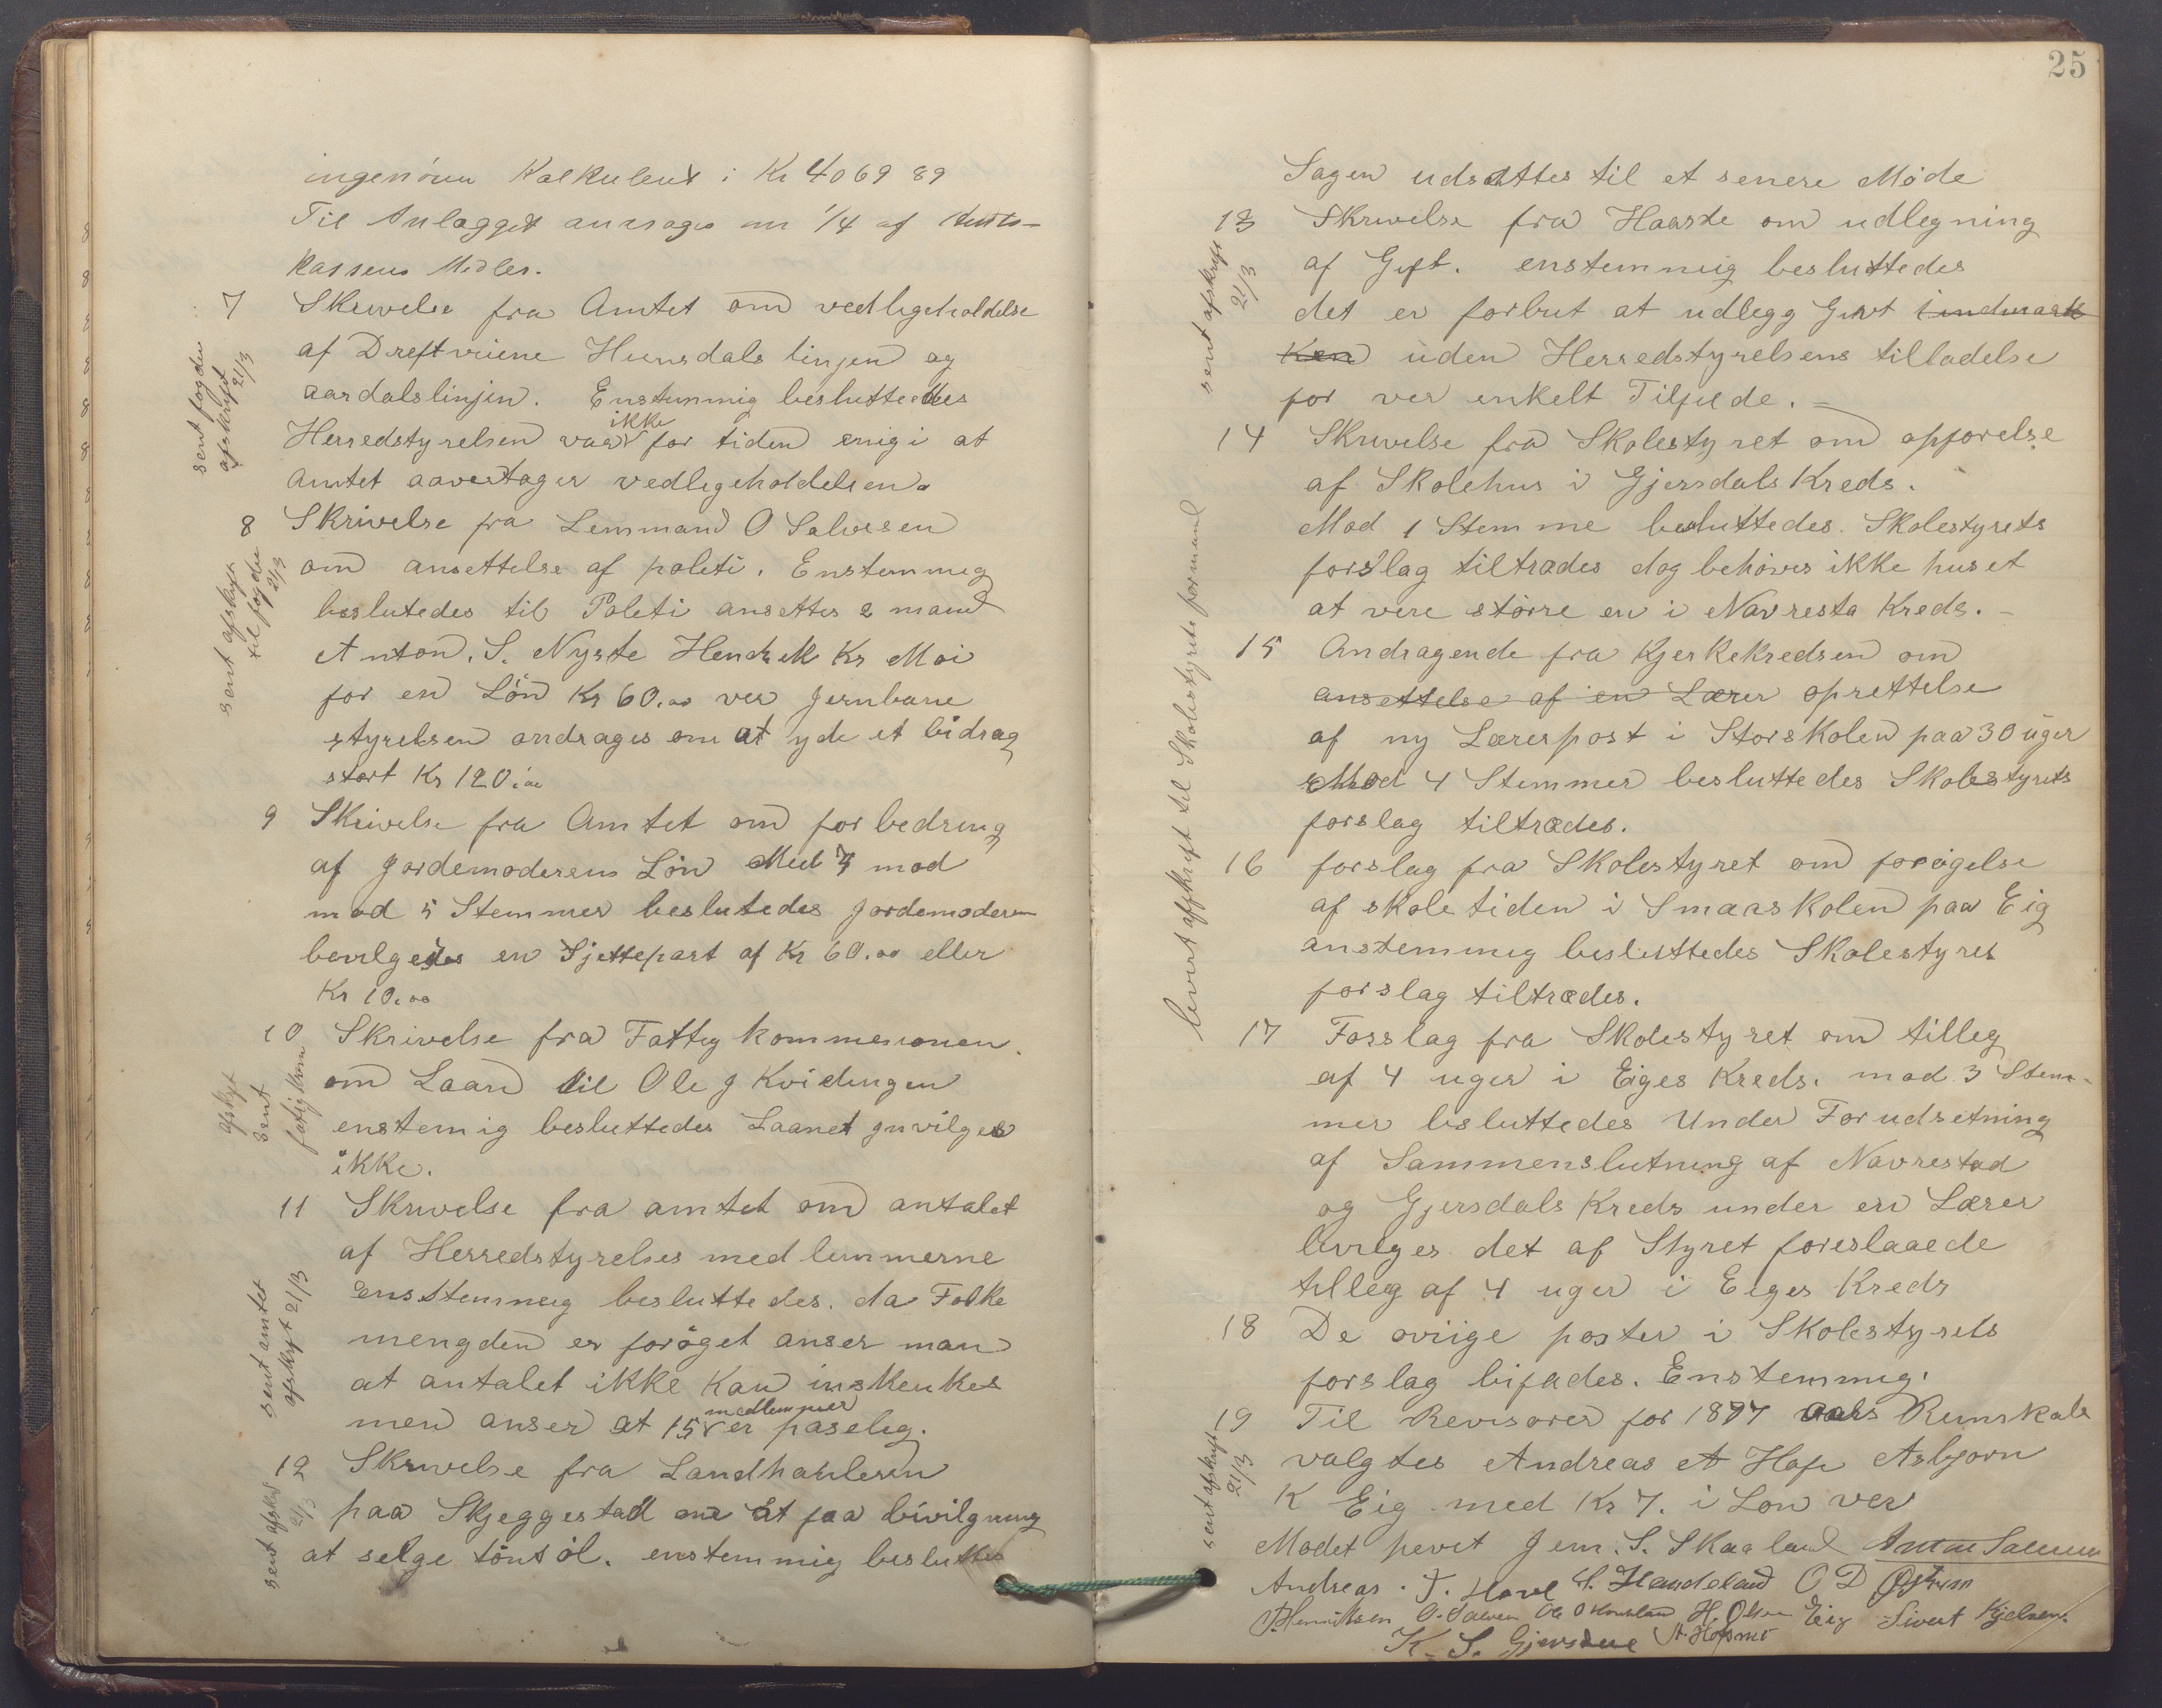 ingeniørens Kalkulent i Kr 4069 89
Til Anlægget ansøges om 1/4 af Amts-
kassens Midler.
7 Skrivelse fra Amtet om vedligeholdelse
af Driftveiene Hunsdals linjen og
aardalslinjen. Enstemmig besluttedes
Herredstyrelsen vaar ikke for tiden enig i at
Amtet aavertager vedligeholdelsen.
sent fogden
afskrift 21/3
8 Skrivelse fra Lensmand O Salvesen
om ansettelse af politi. Enstemmig
beslutedes til Politi ansettes 2 mand
Anton. S. Nyste Hendrek Kr Moi
for en Lön Kr 60.00 ver Jernbane
styrelsen andrages om at yde et bidrag
stort Kr 120.00
sent afskrf
til fogden
21/3
9 Skrivelse fra Amtet om forbedring
af Jordemoderens Lön Med 7 mod
mod 5 Stemmer beslutedes Jordemoderen
bevilgedes en Sjettepart af Kr 60.00 eller
Kr 10.00
10 Skrivelse fra Fattig kommesionen
om Laan til Ole J Kvidingen
enstemig besluttedes Laanet invilges
ikke.
afskrft
sent
fatigkom
11 Skrivelse fra amtet om antalet
af Herredstyrelses medlemmerne
ensstemmig besluttedes. da Folke
mengden er foröget anser man
at antalet ikke kan inskenkes
men anser at 15 medlemmer er paselig.
sent amtet
afskrft 21/3
12 Skrivelse fra Landhandleren
paa Skjeggestad om at faa bivilgning
at selge töntöl. enstemmig besluttes
sent afskrf
21/3
25
Sagen udsættes til et senere Møde
13 Skrivelse fra Haaste om udlegning
af Gift. enstemmig besluttedes
det er forbut at udlegg Givt i indmark
ken uden Herredstyrelsens tilladelse
for ver enkelt Tilfelde.
sent afskrift
21/3
14 Skrivelse fra Skolestyret om opförelse
af Skolehus i Gjersdals Kreds.
Mod 1 Stemme besluttedes Skolestyrets
forslag tiltrædes dog behöves ikke huset
at vere större en i Navresta Kreds.
15 Andragende fra Kjerkekredsen om
ansettelse af en Lærer oprettelse
af ny Lærerpost i Storskolen paa 30 uger
Mod 4 Stemmer besluttedes Skolestyrets
forslag tiltrædes.
16 forslag fra Skolestyret om forögelse
af skoletiden i Smaaskolen paa Eig
anstemmig besluttedes Skolestyres
forslag tiltrædes.
levert afskrift til Skolestyrets formand
17 Forslag fra Skolestyret om tilleg
af 4 uger i Eiges Kreds. mod 3 Stem-
mer besluttedes Under Forudsetning
af Sammenslutning af Navrestad
og Gjersdals Kreds under en Lærer
bivilges det af Styret foreslaaede
tilleg af 4 uger i Eiges Kreds
18 De øvrige poster i Skolestyrets
forslag bifades. Enstemmig.
19 Til Revisorer for 1897 aars Reinskab
valgtes Andreas A Hofe Asbjorn
K Eig med Kr 7. i Lon ver
sent afskrift
21/3
Mødet hevet Jem. S. Skaaland Anton Salvesen
Andreas. T. Hove S. Handeland O D Østreim
P. Henriksen O. Salvesen H. Olsen Eig Sivert Kjelsen.
K. S. Gjersdal A. Hofsmo